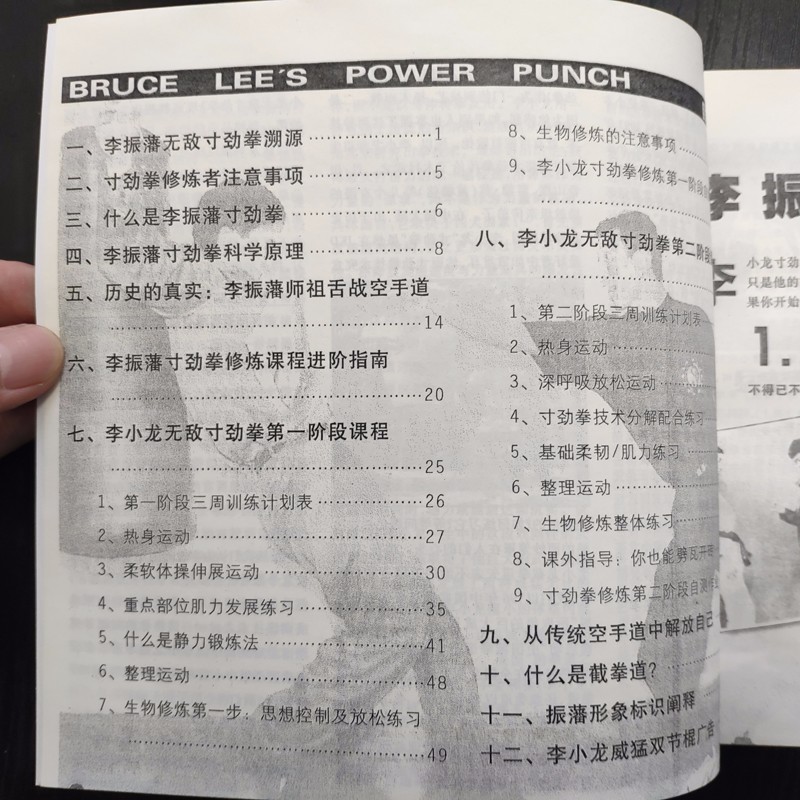 BRUCE LEE'S POWER PUNCH
一、李振藩无敌寸劲拳溯源……………1
二、寸劲拳修炼者注意事项……………5
三、什么是李振藩寸劲拳………………6
四、李振藩寸劲拳科学原理……………8
五、历史的真实：李振藩师祖舌战空手道
……………………………14
六、李振藩寸劲拳修炼课程进阶指南
……………………………20
七、李小龙无敌寸劲拳第一阶段课程
……………………………25
1、第一阶段三周训练计划表…………26
2、热身运动……………………27
3、柔软体操伸展运动………………30
4、重点部位肌力发展练习……………35
5、什么是静力锻炼法………………41
6、整理运动……………………48
7、生物修炼第一步：思想控制及放松练习
……………………………49
8、生物修炼的注意事项……
9、李小龙寸劲拳修炼第一阶段
……………
八、李小龙无敌寸劲拳第二阶段
……………
1、第二阶段三周训练计划表
2、热身运动…………
3、深呼吸放松运动……
4、寸劲拳技术分解配合练习
5、基础柔韧/肌力练习……
6、整理运动…………
7、生物修炼整体练习……
8、课外指导：你也能劈瓦开
9、寸劲拳修炼第二阶段自测
九、从传统空手道中解放自己
十、什么是截拳道？……
十一、振藩形象标识阐释……
十二、李小龙威猛双节棍广告
李振
李
小龙寸劲
只是他的
果你开始
1.
不得已不